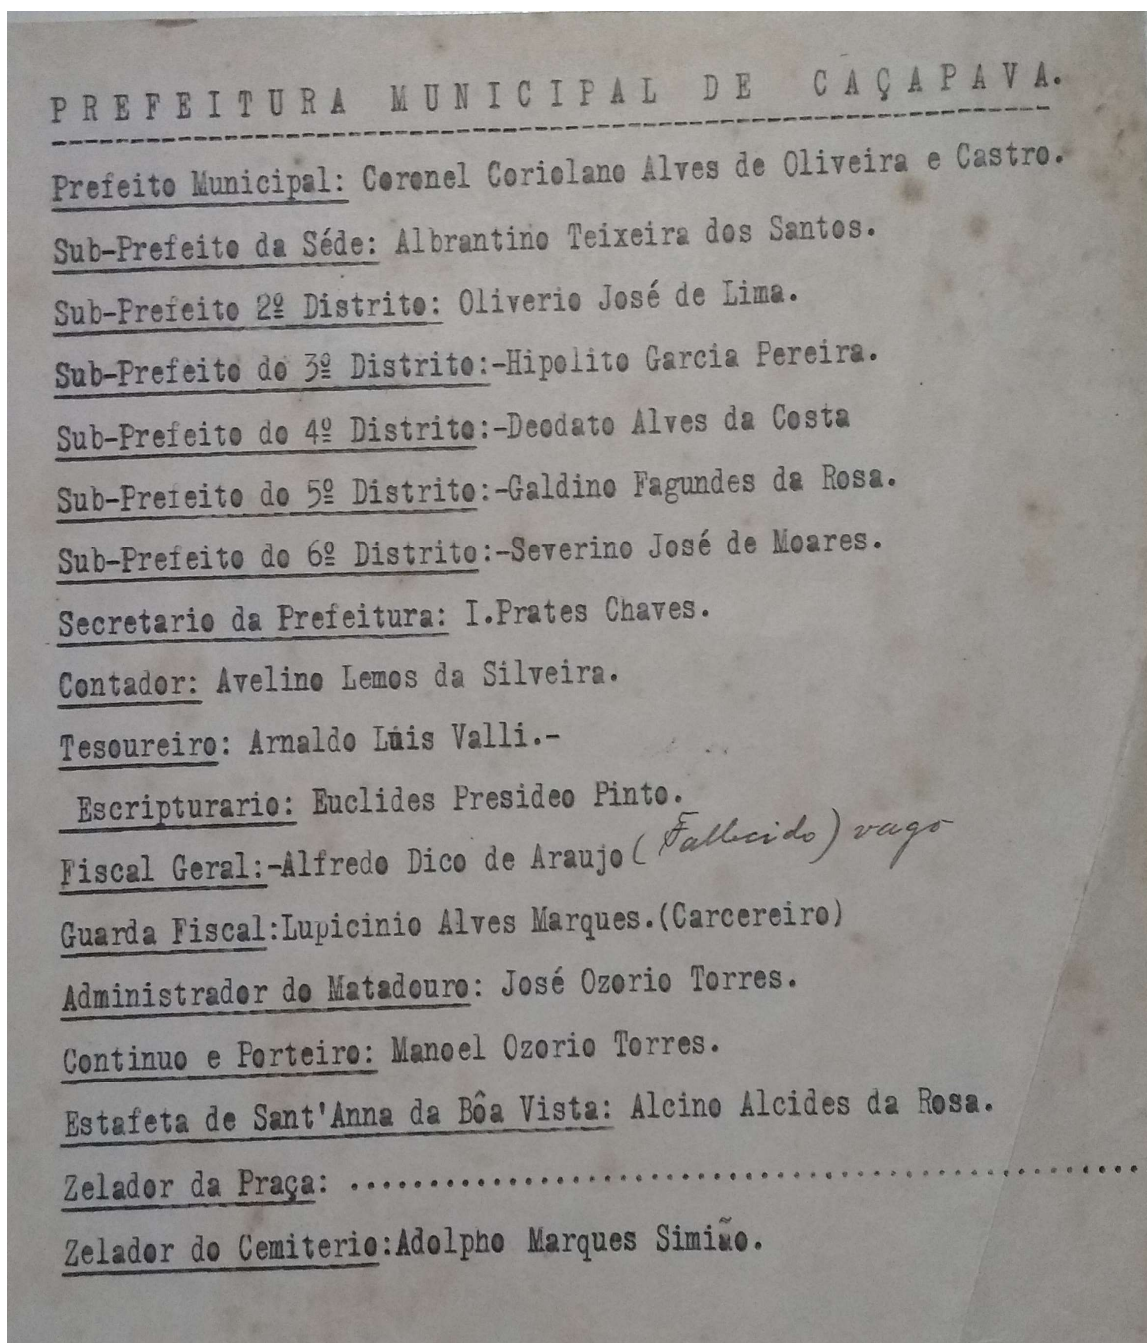 PREFEITURA MUNICIPAL DE CAÇAPAVA.
Prefeito Municipal: Coronel Coriolano Alves de Oliveira e Castro.
Sub-Prefeito da Séde: Albrantino Teixeira dos Santos.
Sub-Prefeito 2º Distrito: Oliverio José de Lima.
Sub-Prefeito do 3º Distrito:-Hipolito Garcia Pereira.
Sub-Prefeito do 4º Distrito:-Deodato Alves da Costa
Sub-Prefeito do 5º Distrito:-Galdino Fagundes da Rosa.
Sub-Prefeito do 6º Distrito:-Severino José de Moares.
Secretario da Prefeitura: I.Prates Chaves.
Contador: Avelino Lemos da Silveira.
Tesoureiro: Arnaldo Luis Valli.-
Escripturario: Euclides Presideo Pinto.
Fiscal Geral:-Alfredo Dico de Araujo (Fallecido) vago
Guarda Fiscal:Lupicinio Alves Marques.(Carcereiro)
Administrador do Matadouro: José Ozorio Torres.
Continuo e Porteiro: Manoel Ozorio Torres.
Estafeta de Sant'Anna da Bôa Vista: Alcino Alcides da Rosa.
Zelador da Praça: ..................................................
Zelador do Cemiterio:Adolpho Marques Simião.